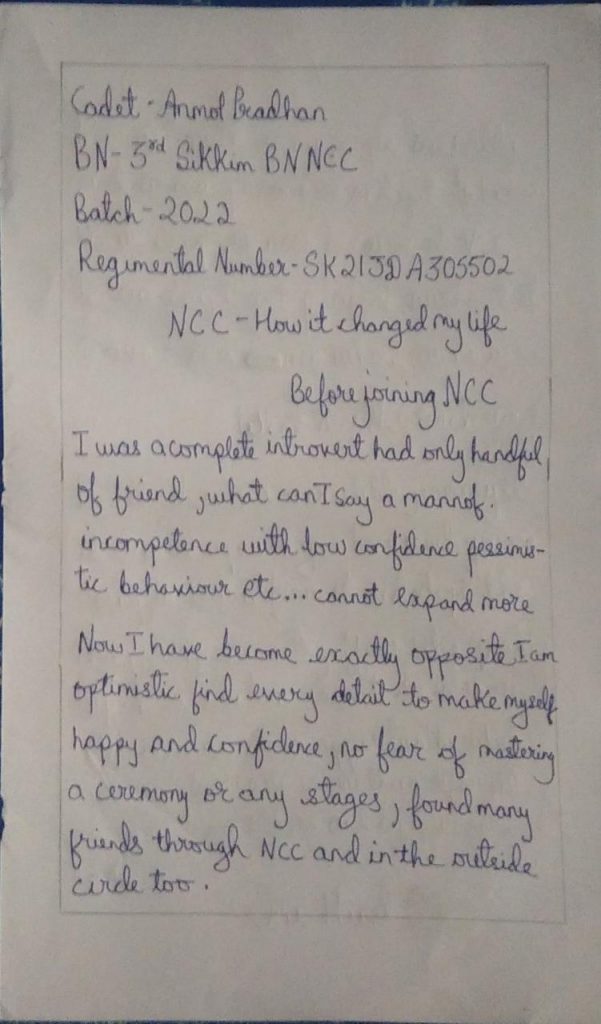 Cadet - Anmol Pradhan
BN- 3rd Sikkim BN NCC
Batch - 2022
Regimental Number - SK21JDA305502
NCC - How it changed my life
Before joining NCC
I was a complete introvert had only handful
of friend, what can I say a man of.
incompetence with low confidence pessimis-
tic behaviour etc... cannot expand more
Now I have become exactly opposite I am
optimistic find every detail to make myself
happy and confidence, no fear of mastering
a ceremony or any stages, found many
friends through NCC and in the outside
circle too.